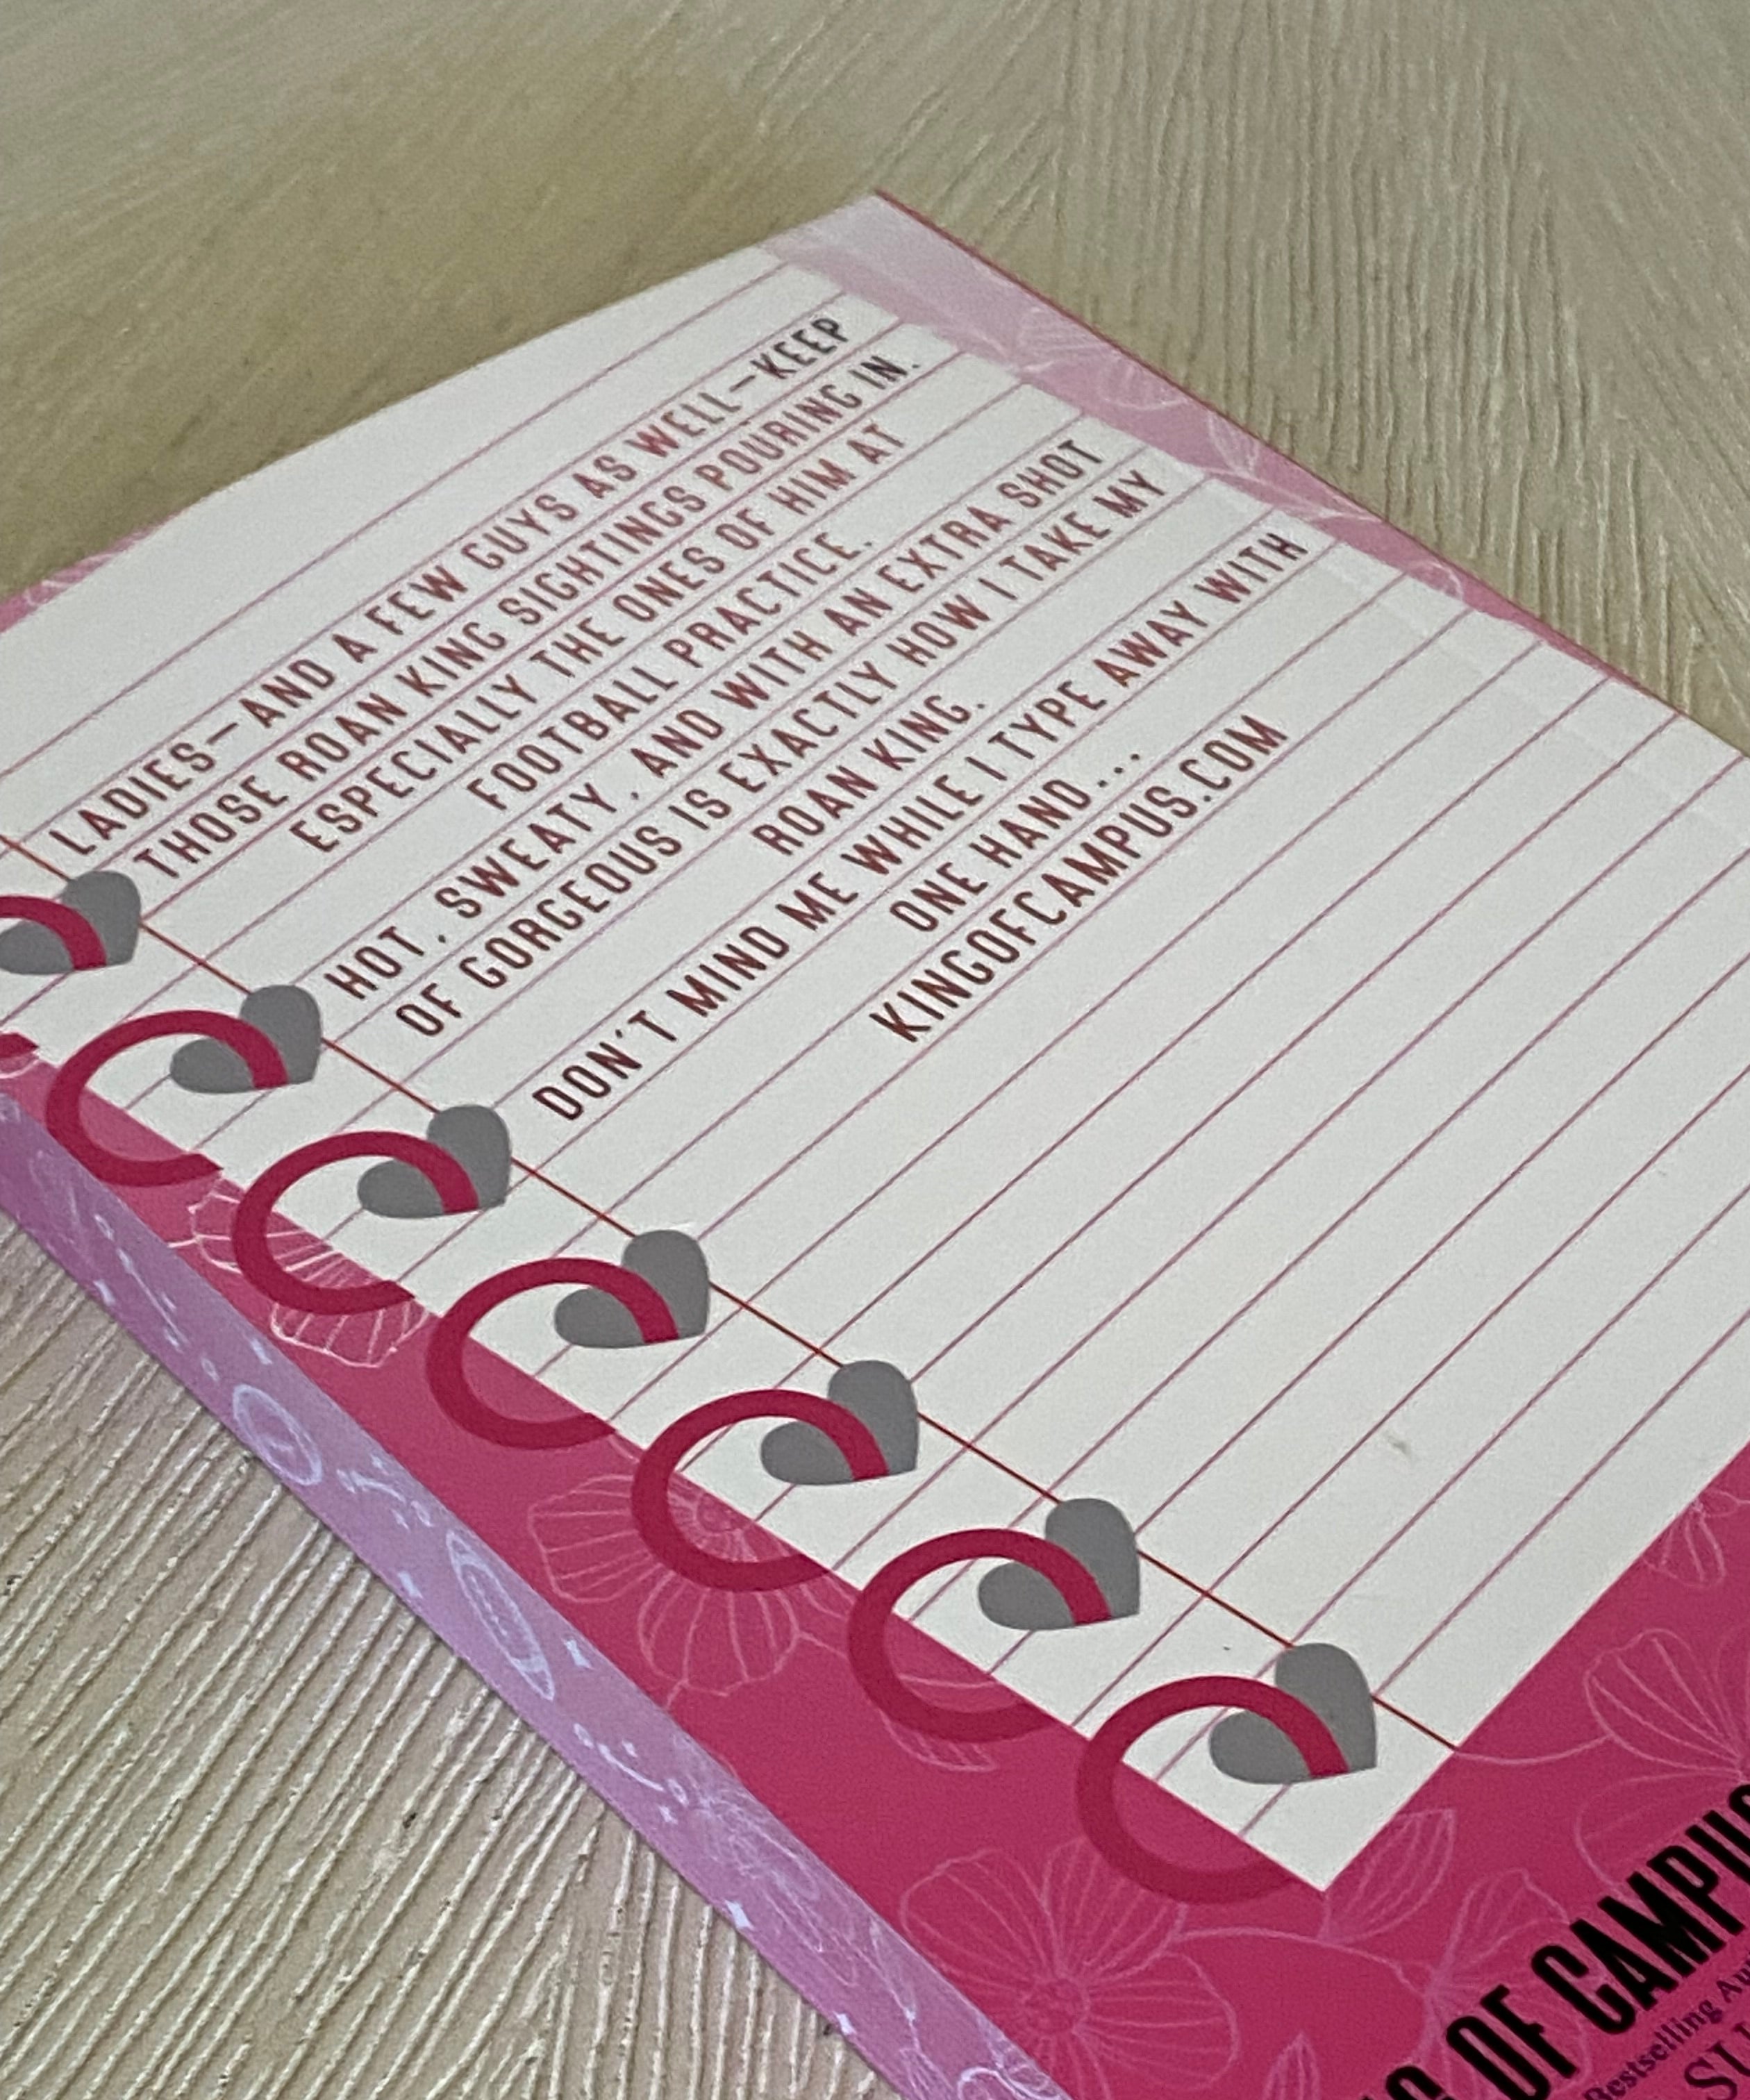 LADIES—AND A FEW GUYS AS WELL—KEEP
THOSE ROAN KING SIGHTINGS POURING IN.
ESPECIALLY THE ONES OF HIM AT
FOOTBALL PRACTICE.
HOT, SWEATY, AND WITH AN EXTRA SHOT
OF GORGEOUS IS EXACTLY HOW I TAKE MY
ROAN KING.
DON'T MIND ME WHILE I TYPE AWAY WITH
ONE HAND...
KINGOFCAMPUS.COM
OF CAMPUS